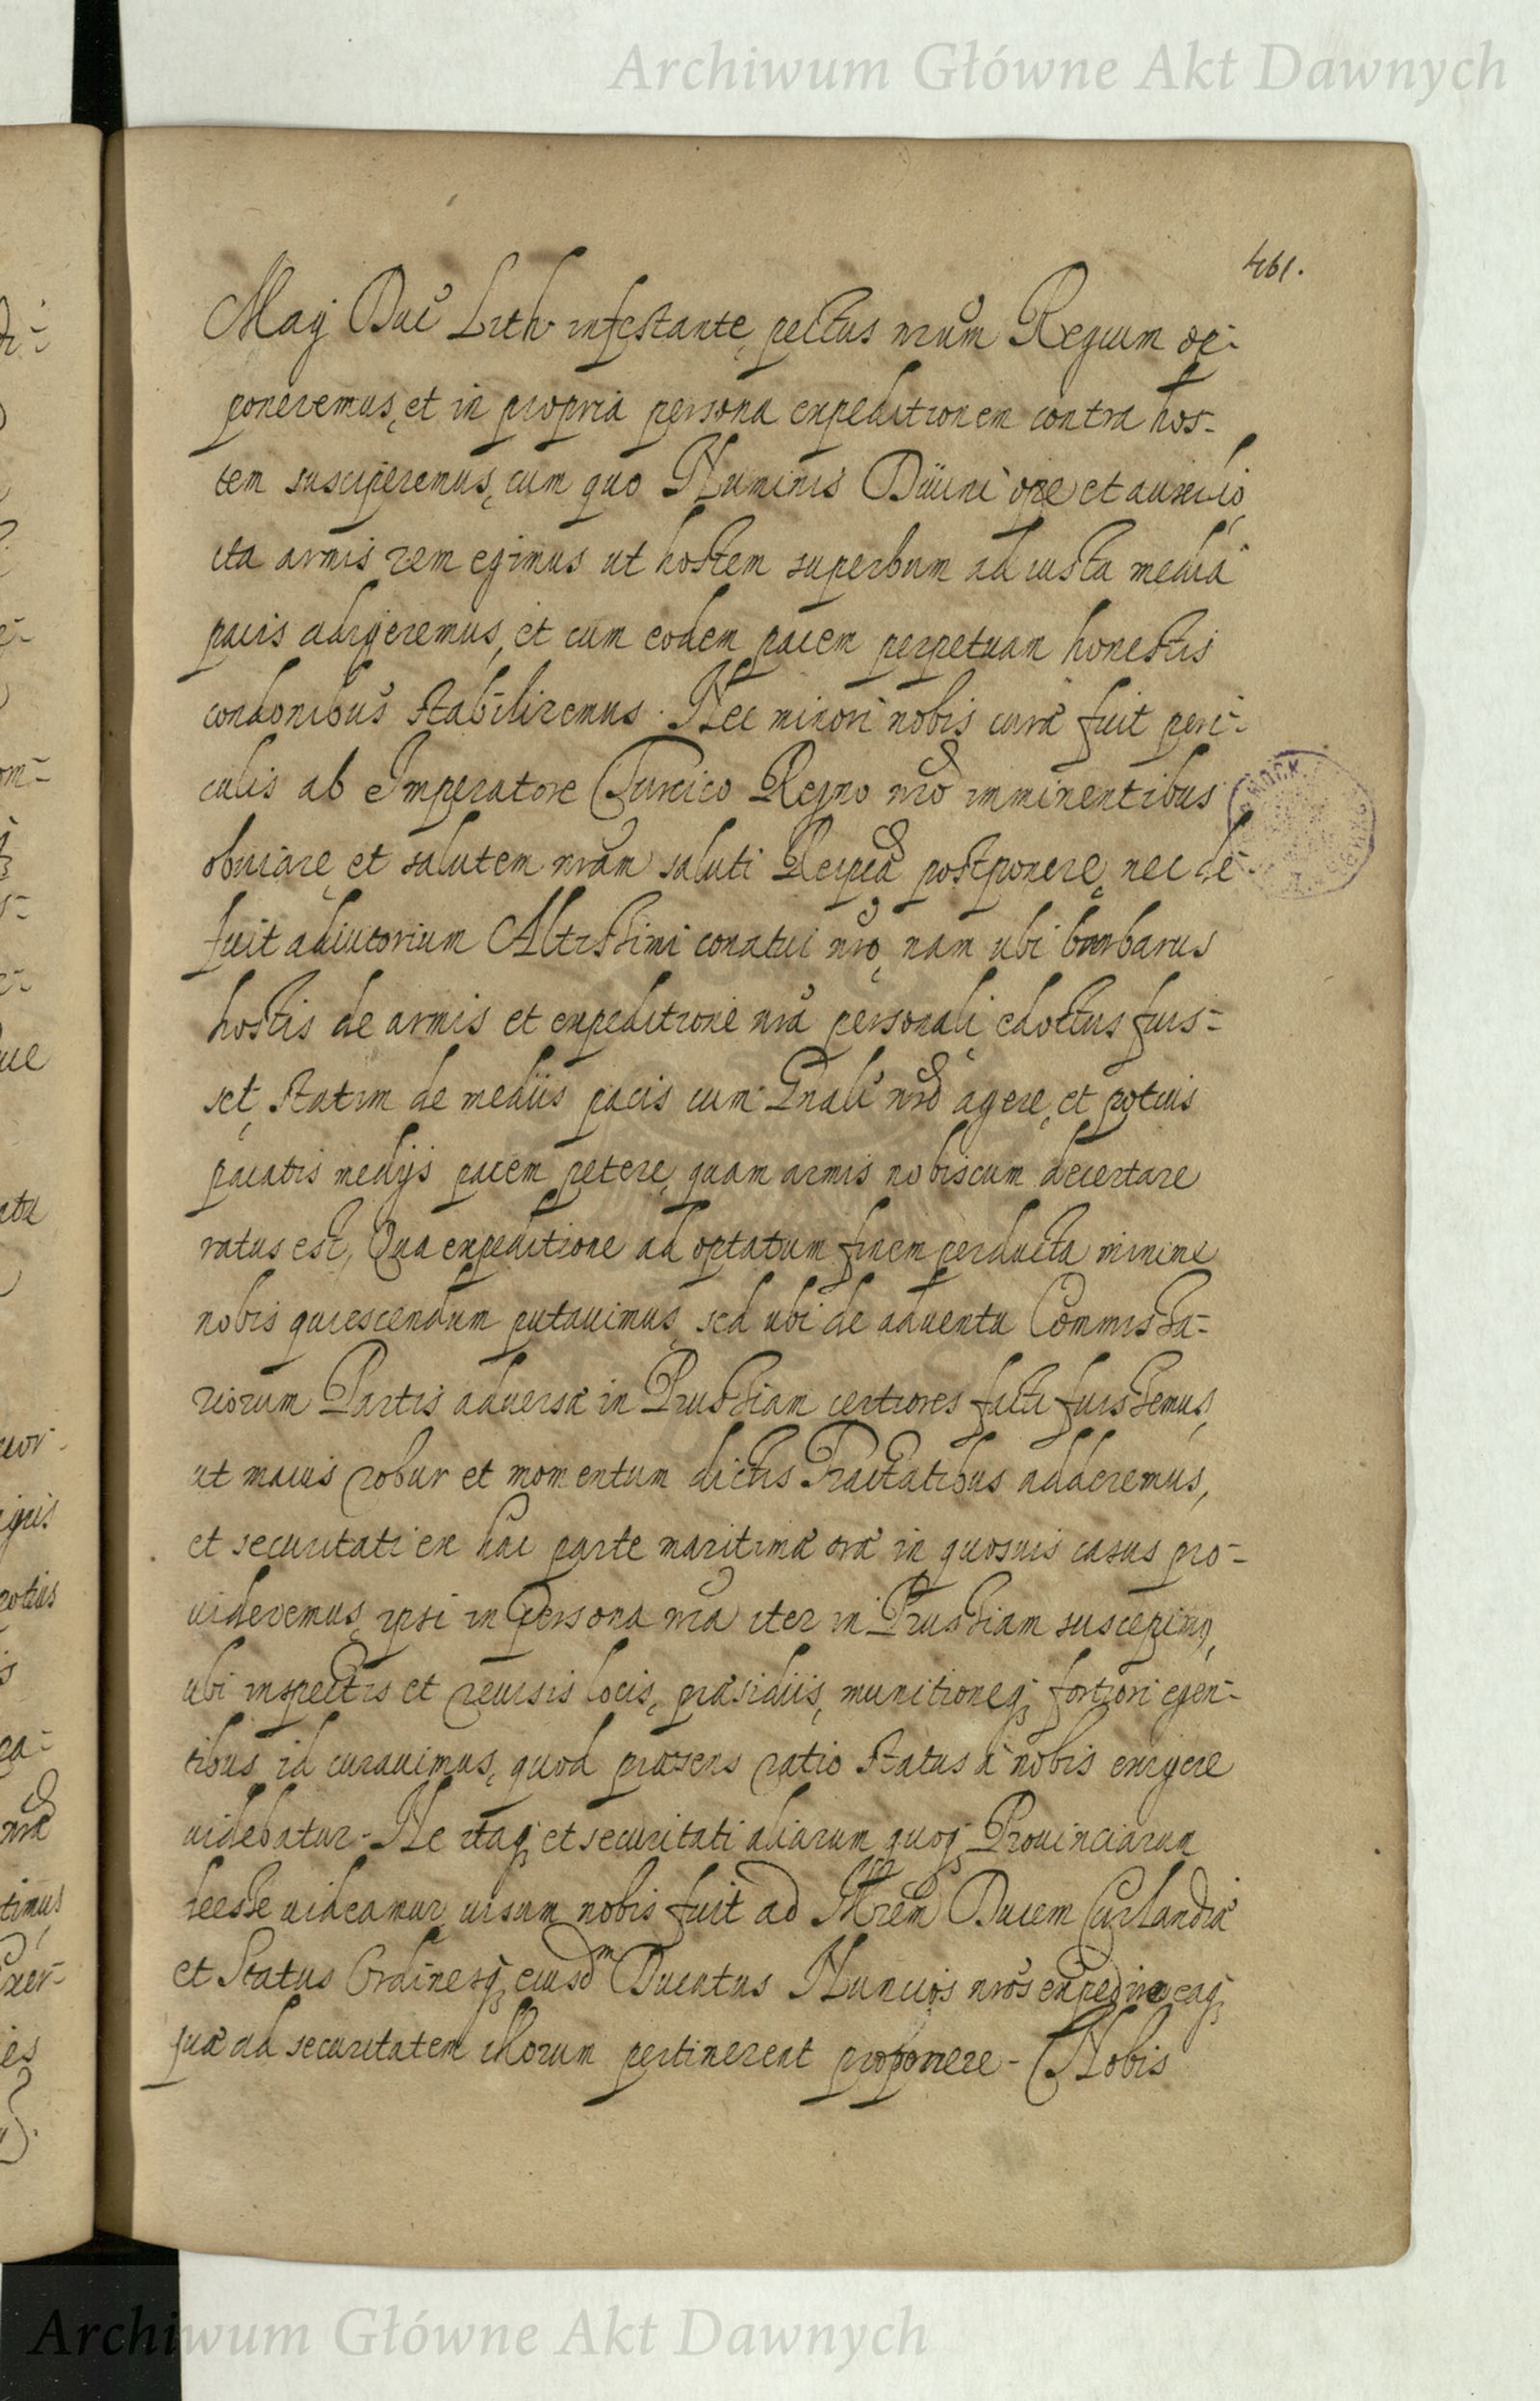 Archiwum Główne Akt Dawnych
461.
Mag Duc Lith infestante, pectus nrum Regium op-
poneremus, et in propria persona expeditionem contra hos-
tem susciperemus, cum quo Numinis Diuini ope et auxilio,
ita armis rem egimus ut hostem superbum ad iusta media
pacis adigeremus, et cum eodem pacem perpetuam honestis
condonibus stabiliremus. Nec minori nobis cura fuit peri-
culis ab Imperatore Turcico Regno nro imminentibus
obuiare, et salutem nram saluti Reipca postponere, nec de-
fuit adiutorium Altissimi conatui nro, nam ubi barbarus
hostis de armis et expeditione nra personali edoctus fuis-
set, statim de mediis pacis cum Gnali nro agere, et potius
pacatis medijs pacem petere, quam armis nobiscum decertare
ratus est, Qua expeditione ad optatum finem perducta minime
nobis quiescendum putauimus, sed ubi de aduentu Commissa-
riorum Partis aduersæ in Prussiam certiores facti fuissemus,
ut maius robur et momentum dictis Tractatibus adderemus,
et securitati ex hac parte maritimæ oræ in quosuis casus pro-
uideremus, ipsi in persona nra iter in Prussiam suscepimus,
ubi inspectis et reuisis locis, præsidiis, munitioneq fortiori egen-
tibus id curauimus, quod præsens ratio status a nobis exigere
uidebatur. Ne itaq et securitati aliarum quoq Prouinciarum
deesse uideamur, uisum nobis fuit ad Illrem Ducem Curlandiæ
et Status Ordinesq eiusdm Ducatus Nuncios nros expedire eaq
quæ ad securitatem illorum pertinerent proponere - Nobis
Archiwum Główne Akt Dawnych